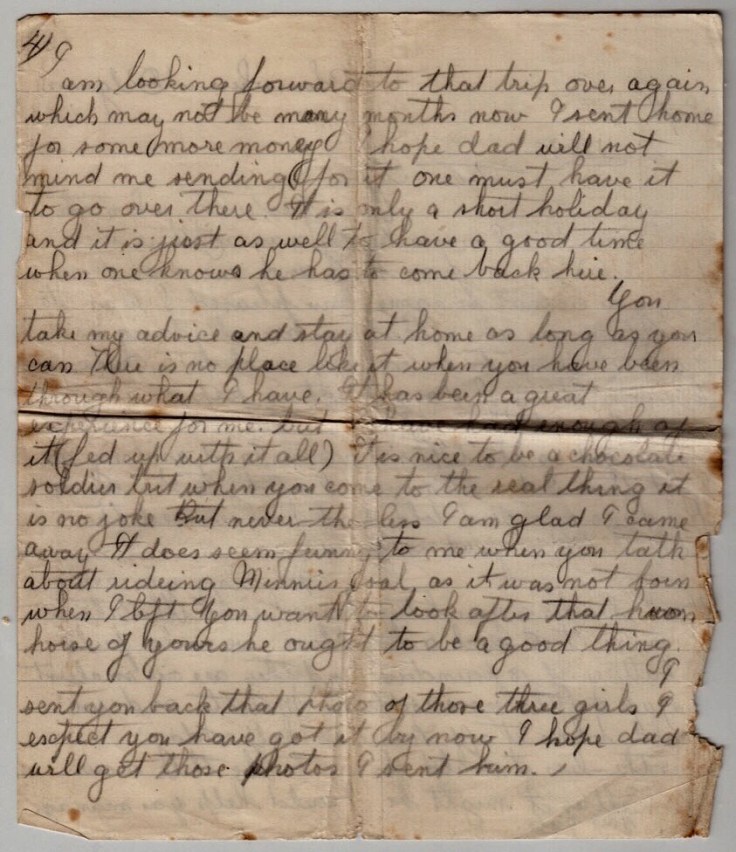 4) I
am looking forward to that trip over again
which may not be many months now I sent home
for some more money I hope dad will not
mind me sending for it one must have it
to go over there. It is only a short holiday
and it is just as well to have a good time
when one knows he has to come back hire.
You
take my advice and stay at home as long as you
can Thire is no place like it when you have been
through what I have. It has been a great
experience for me. but I have had enough of
it (fed up with it all) It is nice to be a chocolate
soldier but when you come to the real thing it
is no joke But never the less I am glad I came
away It does seem funny to me when you talk
about rideing Minnies foal as it was not born
when I left You want to look after that
horse of yours he ought to be a good thing.
I
sent you back that photo of those three girls I
expect you have got it by now I hope dad
will get those photos I sent him.